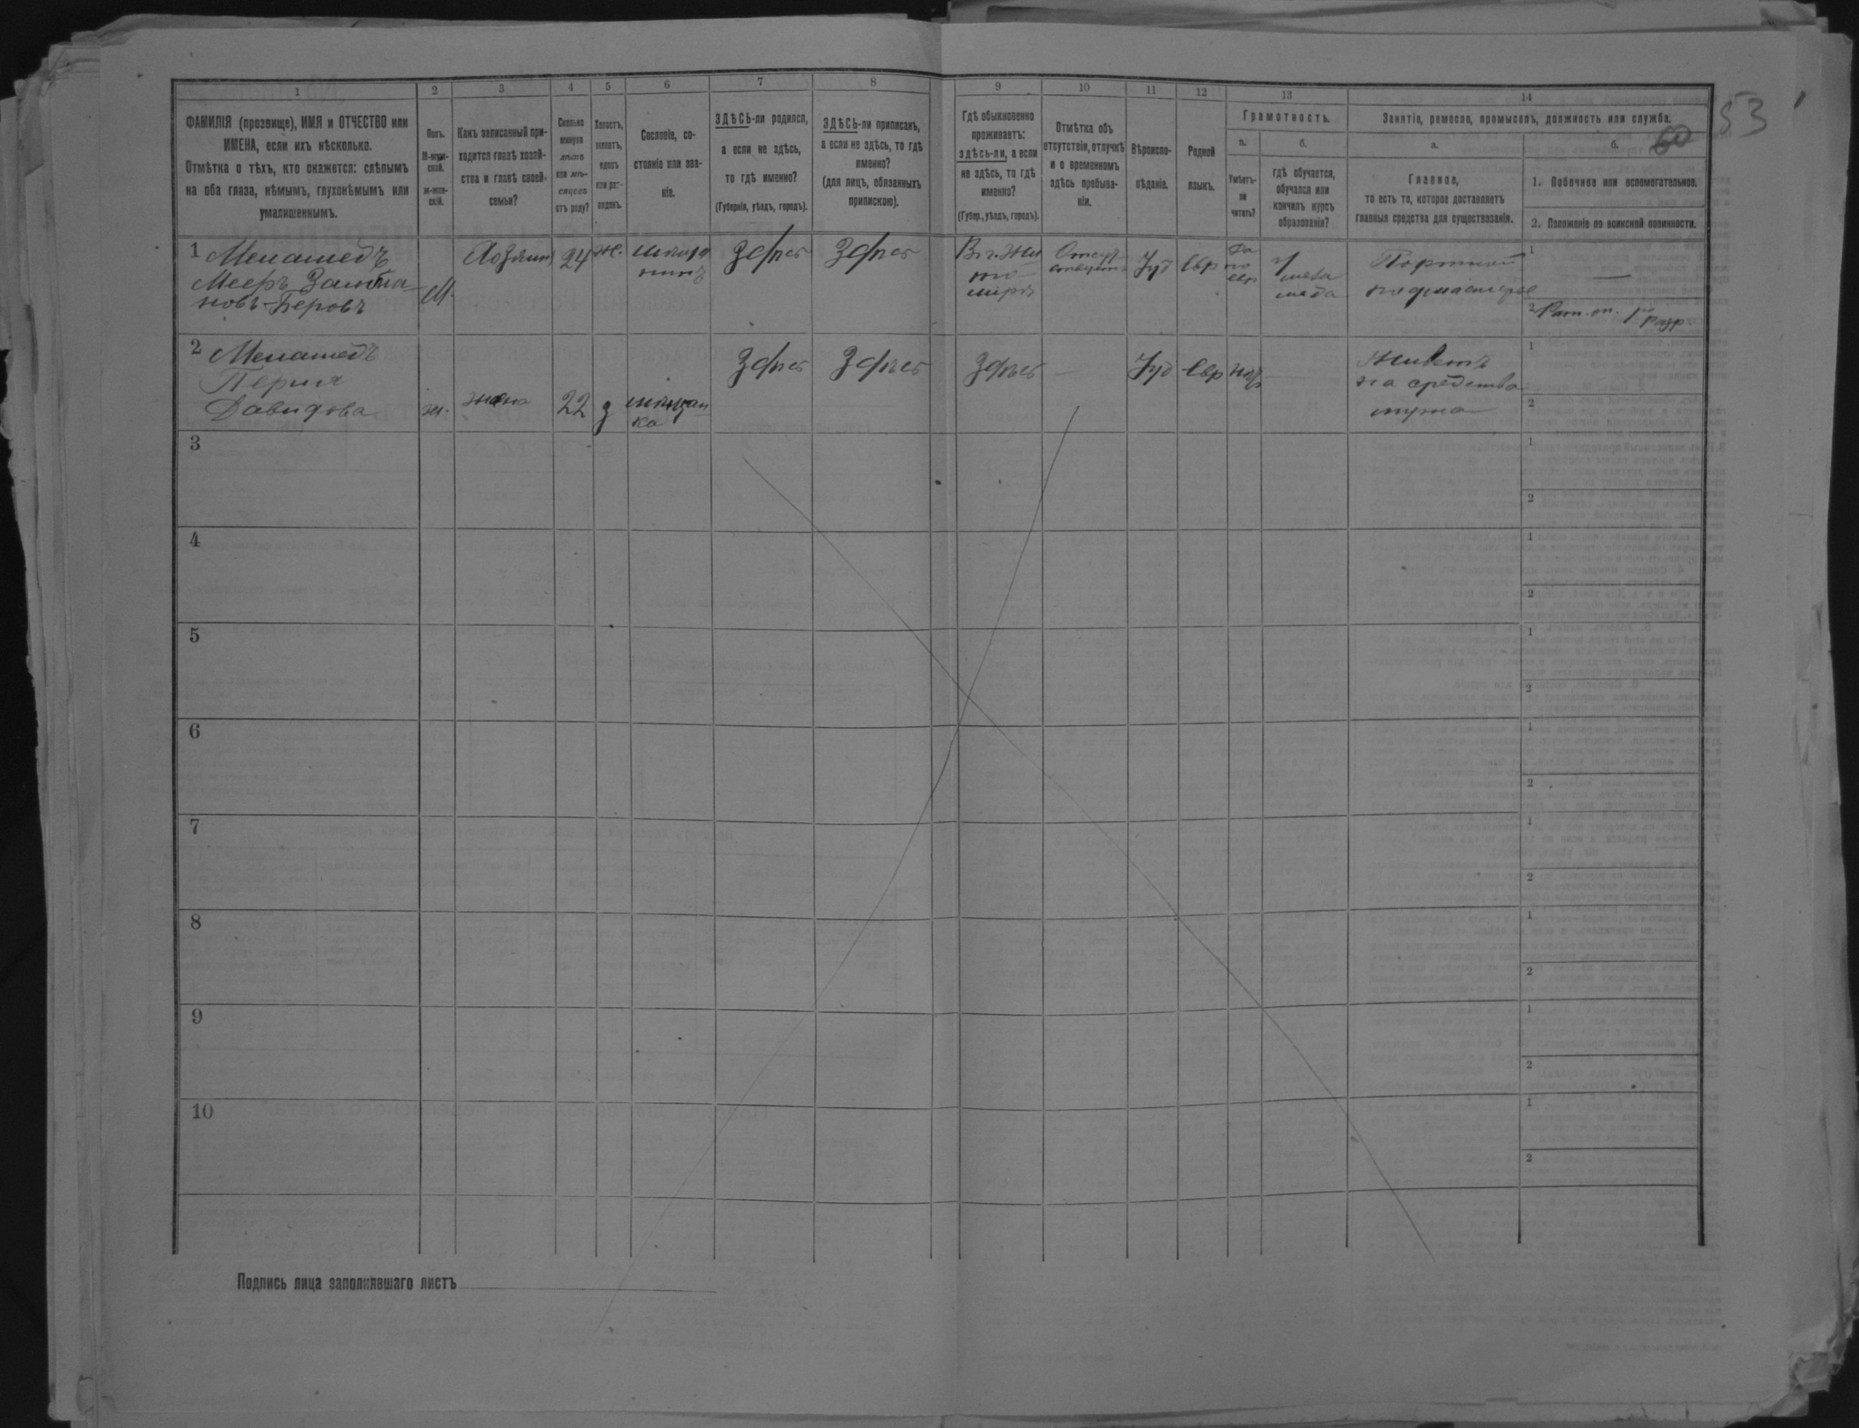 53
60
1 2 3 4 5 6 7 8 9 10 11 12 13 14
ФАМИЛІЯ (прозвище), ИМЯ и ОТЧЕСТВО или
ИМЕНА, если ихъ нѣсколько.
Отмѣтка о тѣхъ, кто окажется: слѣпымъ
на оба глаза, нѣмымъ, глухонѣмымъ или
умалишеннымъ.
Полъ.
М-муж-
ской.
ж-жен-
скій.
Какъ записанный при-
ходится главѣ хозяй-
ства и главѣ своей
семьи?
Сколько
минуло
лѣтъ
или мѣ-
сяцевъ
отъ роду?
Холостъ,
женатъ,
вдовъ
или раз-
веденъ.
Сословіе, со-
стояніе или зва-
ніе.
ЗДѢСЬ-ли родился,
а если не здѣсь,
то гдѣ именно?
(Губернія, уѣздъ, городъ).
ЗДѢСЬ-ли приписанъ,
а если не здѣсь, то гдѣ
именно?
(для лицъ, обязанныхъ
припискою).
Гдѣ обыкновенно
проживаетъ:
здѣсь-ли, а если
не здѣсь, то гдѣ
именно?
(Губер., уѣздъ, городъ).
Отмѣтка объ
отсутствіи, отлучкѣ
и о временномъ
здѣсь пребыва-
ніи.
Вѣроиспо-
вѣданіе.
Родной
языкъ.
Грамотность.
а.
Умѣетъ-
ли
читать?
б.
гдѣ обучается,
обучался или
кончилъ курсъ
образованія?
Занятіе, ремесло, промыселъ, должность или служба.
а.
Главное,
то есть то, которое доставляетъ
главныя средства для существованія.
б.
1. Побочное или вспомогательное.
2. Положеніе по воинской повинности.
1 Менашедъ
Мееръ
Беровъ
М.
Хозяинъ
24
ж.
Здѣсь
Здѣсь
В г. Жи
то
міръ
Отсут
Іуд
Евр
Да
по
евр
У
меда
Портной
подмастерье
1 —
2
2 Менашедъ
Перля
Давидова
ж.
жена
22
з
мѣщан
ка
Здѣсь
Здѣсь
Здѣсь
—
Іуд
Евр
—
Живетъ
на средства
мужа
1
2
3
1
2
4
1
2
5
1
2
6
1
2
7
1
2
8
1
2
9
1
2
10
1
2
Подпись лица заполнявшаго листъ